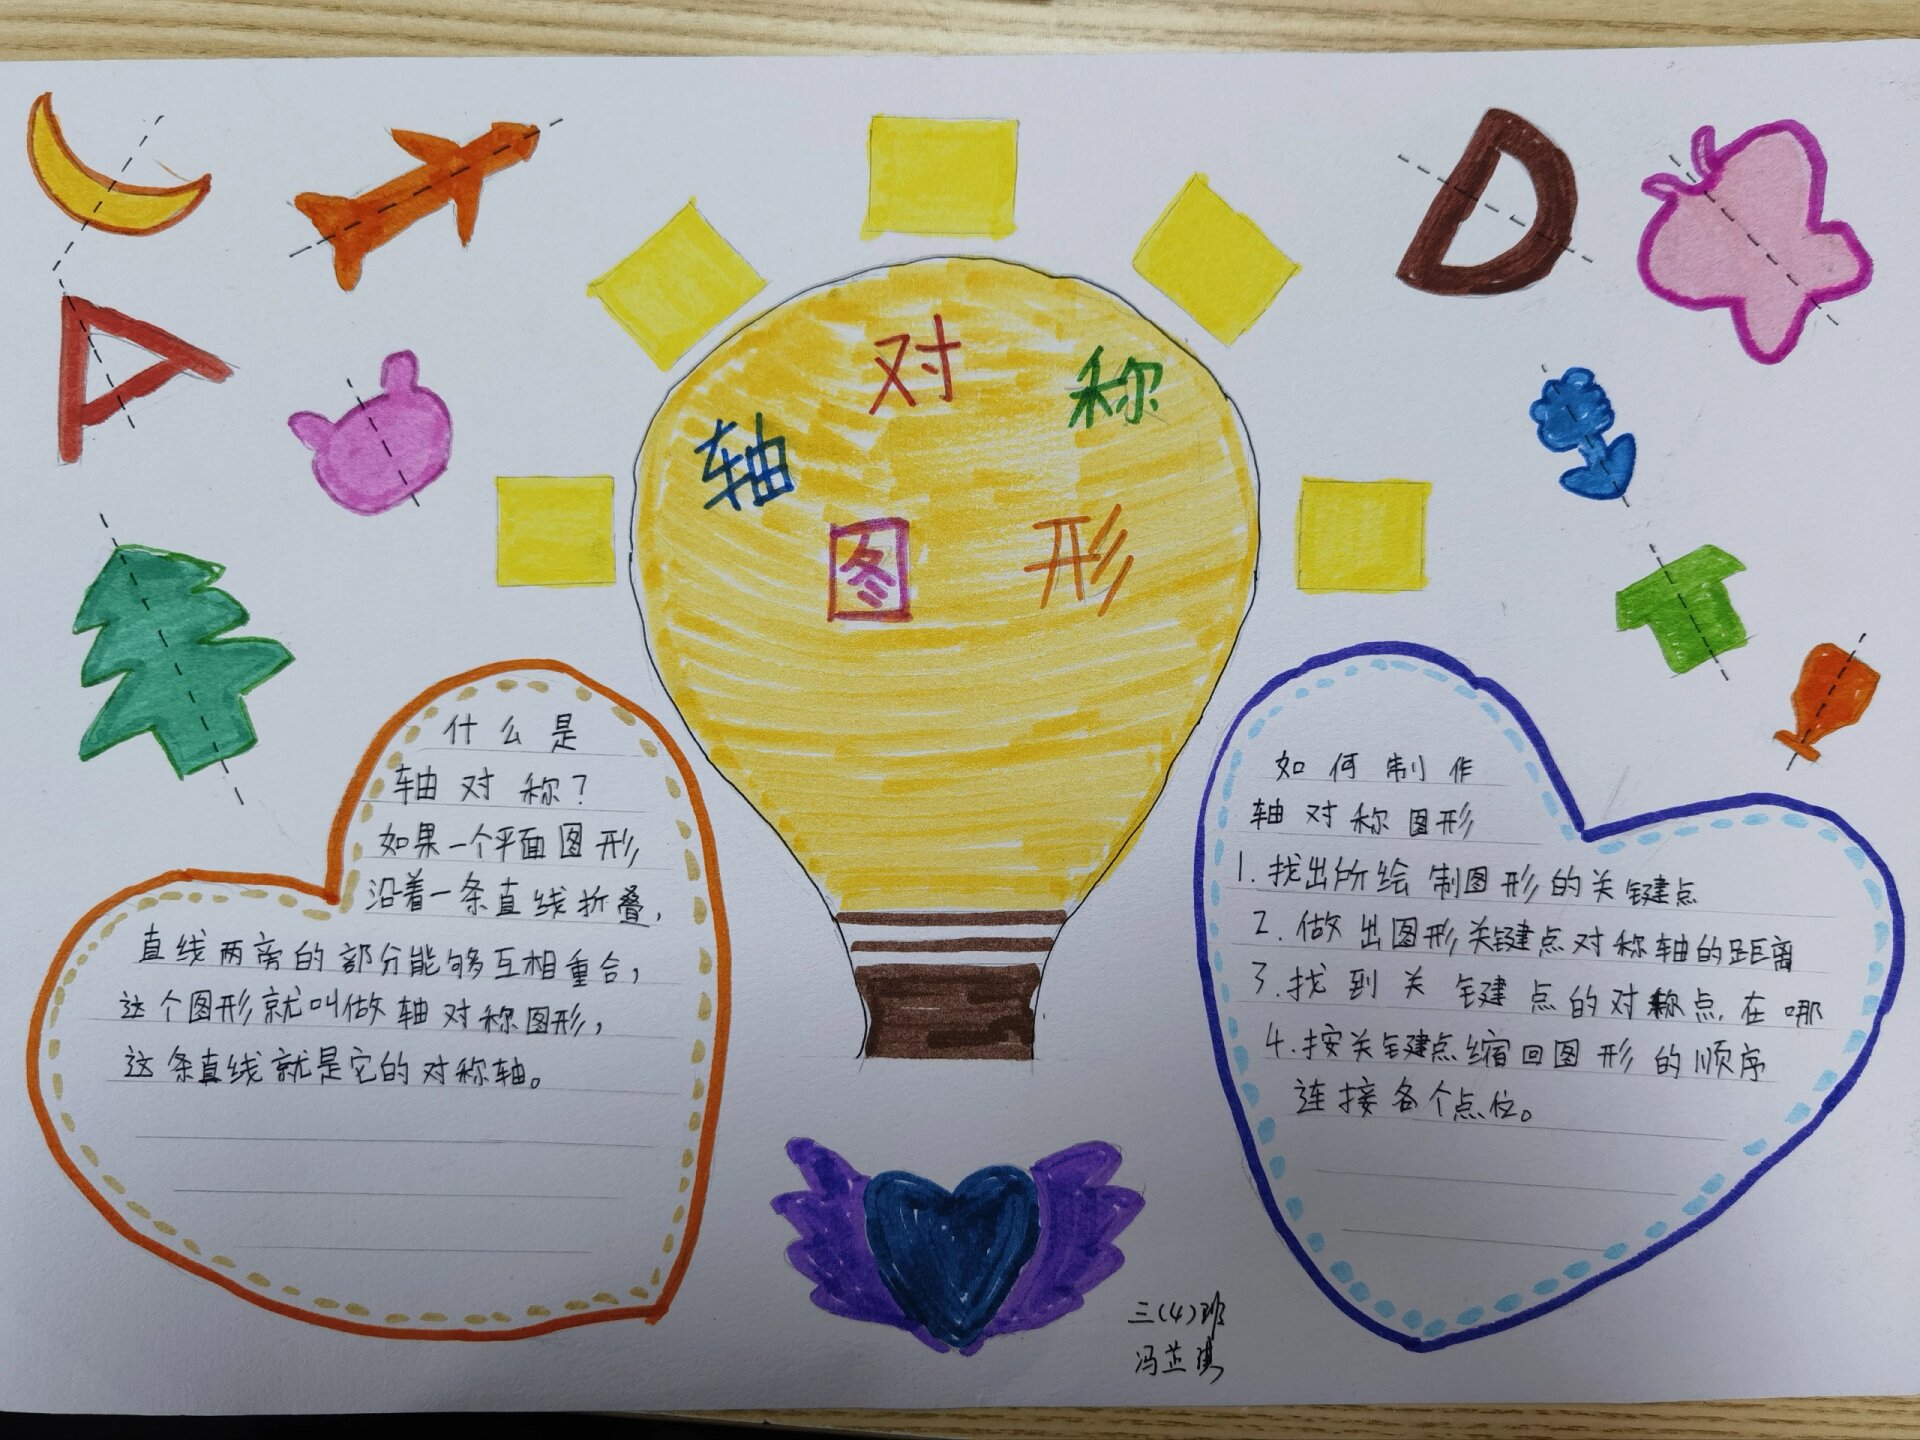 轴对称
图形
什么是
轴对称?
如果一个平面图形,
沿着一条直线折叠,
直线两旁的部分能够互相重合,
这个图形就叫做轴对称图形,
这条直线就是它的对称轴。
如何制作
轴对称图形
1.找出所绘制图形的关键点
2.做出图形关键点对称轴的距离
3.找到关键点的对称点,在哪
4.按关键点缩回图形的顺序
连接各个点位。
三(4)班
冯芷琪
A
D